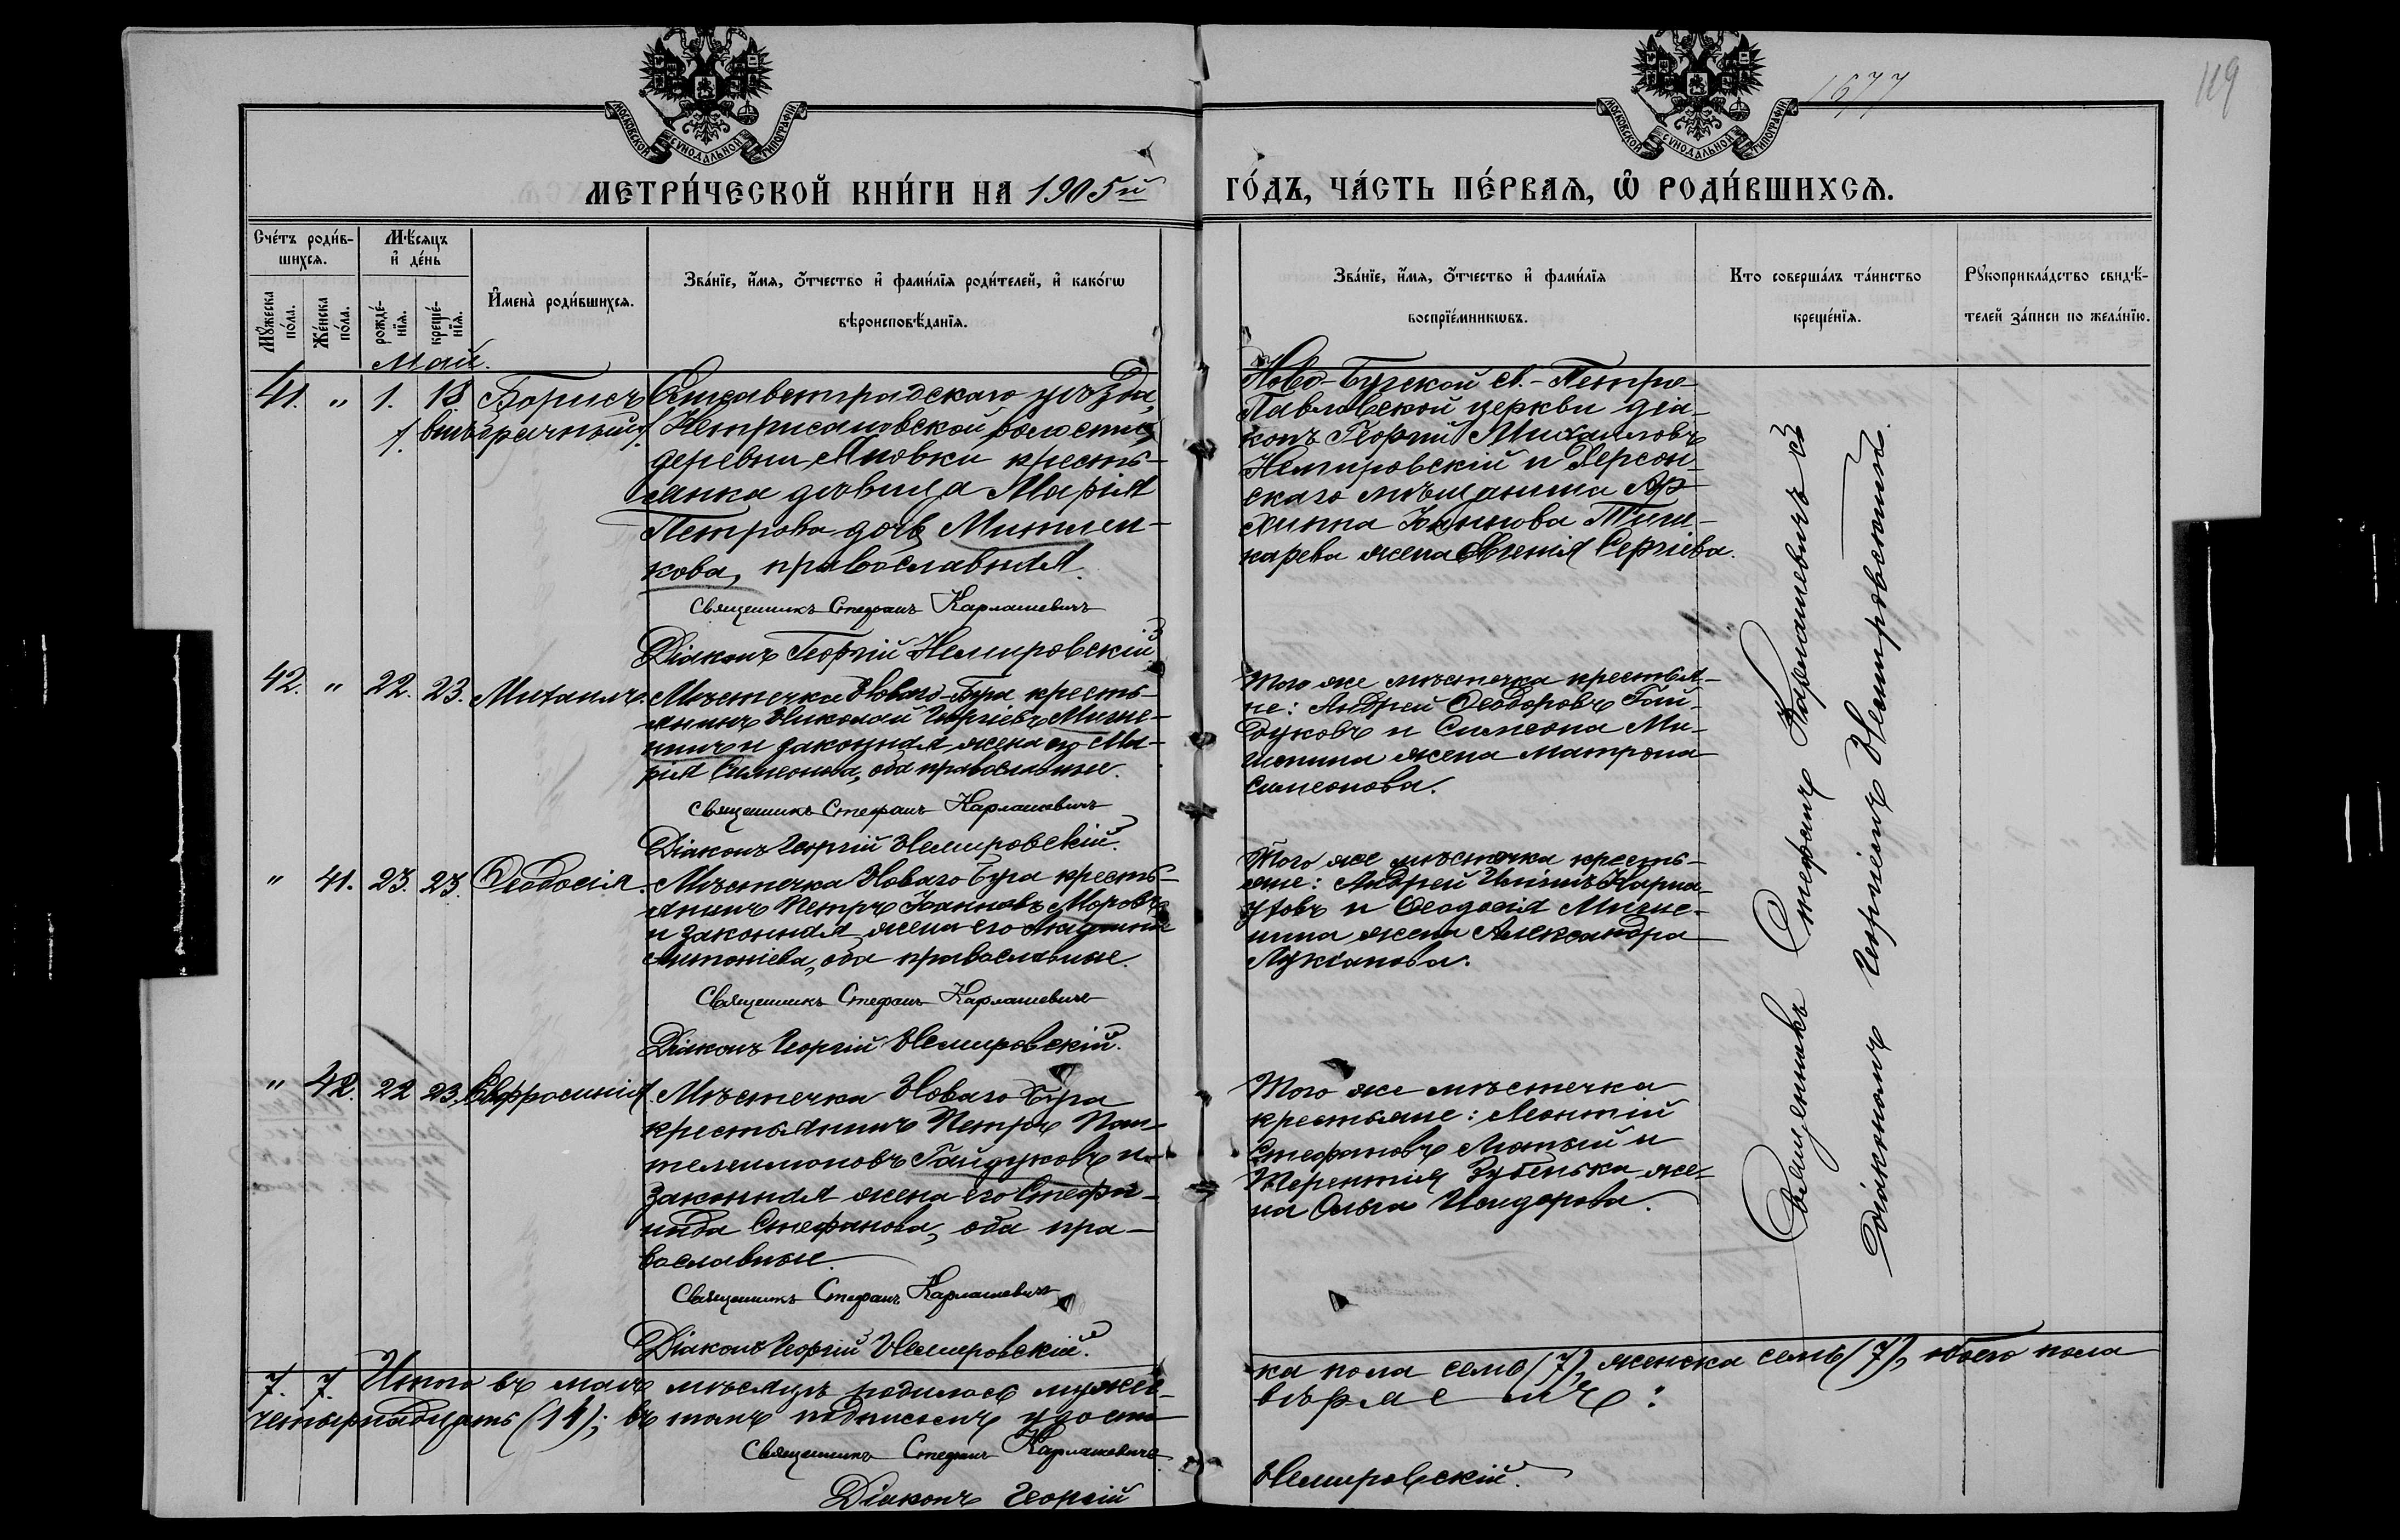 1677
119
МОСКОВСКОЙ СѴНОДАЛЬНОЙ ТИПОГРАФІИ
МОСКОВСКОЙ СѴНОДАЛЬНОЙ ТИПОГРАФІИ
МЕТРИ́ЧЕСКОЙ КНИ́ГИ НА 1905й
ГО́ДЪ, ЧА́СТЬ ПЕ́РВАѦ, Ѡ҆ РОДИ́ВШИХСѦ.
Сче́тъ роди́в-
шихсѧ.
Мꙋ́жеска по́ла.
Же́нска по́ла.
Мѣ́сѧцъ
и҆ де́нь
рожде́-
нїѧ.
креще́-
нїѧ.
И҆мена̀ роди́вшихсѧ.
Зва́нїе, и҆́мѧ, ѻ҆́тчество и҆ фами́лїѧ роди́телей, и҆ како́гѡ
вѣроисповѣ́данїѧ.
Зва́нїе, и҆́мѧ, ѻ҆́тчество и҆ фами́лїѧ
воспрїе́мникѡвъ.
Кто соверша́лъ та́инство
креще́нїѧ.
Рꙋкоприкла́дство свидѣ́-
телей за́писи по жела́нїю.
Май.
41. " 1. 18 Борисъ
(внѣбрачный)
Елисаветградскаго уѣзда,
волости,
деревни кресть-
янка дѣвица Марія
Петрова дочь Митлен-
кова, православная.
Священникъ Стефанъ Карлашевичъ
Діаконъ Георгій Немировскій
Ново-Бугской св.-Петро-
Павловской церкви діа-
конъ Георгій Михаиловъ
Немировскій и Херсон-
скаго мѣщанина Ар-
хиппа Іоаннова Тиш-
карева жена Евгенія Сергіева.
42. " 22. 23. Михаилъ.
Мѣстечка Новаго-Буга кресть-
янинъ Николай Георгіевъ Мише-
нинъ и законная жена его Ма-
рія Симеонова, оба православные.
Священникъ Стефанъ Карлашевичъ
Діаконъ Георгій Немировскій.
Того же мѣстечка крестья-
не: Андрей Ѳеодоровъ Гай-
дуковъ и Симеона Ми-
шенина жена Матрона
Симеонова.
" 41. 23. 23. Ѳеодосія.
Мѣстечка Новаго Буга кресть-
янинъ Петръ Іоанновъ
и законная жена его
Антоніева, оба православные.
Священникъ Стефанъ Карлашевичъ
Діаконъ Георгій Немировскій.
Того же мѣстечка кресть-
яне: Андрей
и Ѳеодосія Мише-
нина жена Александра
Лукіанова.
" 42. 22 23. Евфросинія.
Мѣстечка Новаго Буга
крестьянинъ Петръ Пан-
телеимоновъ Гайдуковъ и
законная жена его Стефа-
нида Стефанова, оба пра-
вославные.
Священникъ Стефанъ Карлашевичъ
Діаконъ Георгій Немировскій.
Того же мѣстечка
крестьяне: Леонтій
Стефановъ Лютый и
Терентія Зубенька же-
на Ольга Исидорова.
Священникъ Стефанъ Карлашевичъ съ
діакономъ Георгіемъ Немировскимъ.
7. 7. Итого въ маѣ мѣсяцѣ родилось мужес-
ка пола семь (7), женска семь (7), обоего пола
четырнадцать (14); въ томъ подписомъ удосто-
вѣряемъ:
Священникъ Стефанъ Карлашевичъ
Діаконъ Георгій
Немировскій.